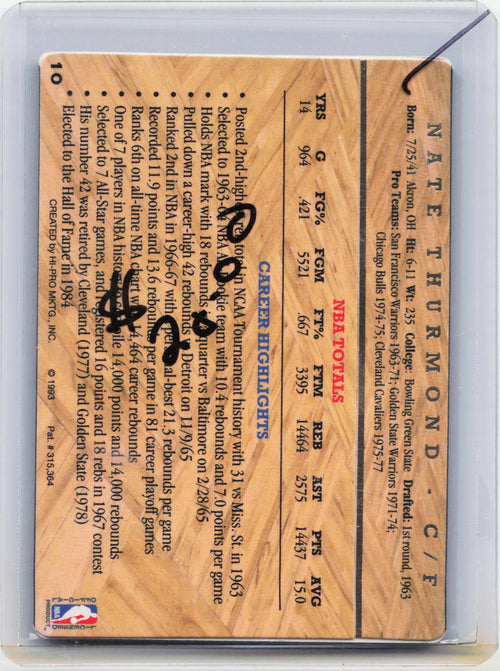 10
NATE THURMOND · C/F
Born: 7/25/41 Akron, OH Ht: 6-11 Wt: 235 College: Bowling Green State Drafted: 1st round, 1963
Pro Teams: San Francisco Warriors 1963-71; Golden State Warriors 1971-74;
Chicago Bulls 1974-75; Cleveland Cavaliers 1975-77
NBA TOTALS
YRS G FG% FGM FT% FTM REB AST PTS AVG
14 964 .421 5521 .667 3395 14464 2575 14437 15.0
CAREER HIGHLIGHTS
• Posted 2nd-high in NCAA Tournament history with 31 vs Miss. St. in 1963
• Selected to 1963-64 NBA rookie team with 10.4 rebounds and 7.0 points per game
• Holds NBA mark with 18 rebounds quarter vs Baltimore on 2/28/65
• Pulled down a career-high 42 rebounds Detroit on 11/9/65
• Ranked 2nd in NBA in 1966-67 with 21.3 rebounds per game
• Recorded 11.9 points and 13.6 rebounds per game in 81 career playoff games
• Ranks 6th on all-time NBA chart 14,464 career rebounds
• One of 7 players in NBA history 14,000 points and 14,000 rebounds
• Selected to 7 All-Star games, and registered 16 points and 18 rebs in 1967 contest
• His number 42 was retired by Cleveland (1977) and Golden State (1978)
• Elected to the Hall of Fame in 1984
CREATED BY HI-PRO MKTG., INC. © 1993 Pat. # 315,364
OFFICIAL LICENSED
NBA
PRODUCT